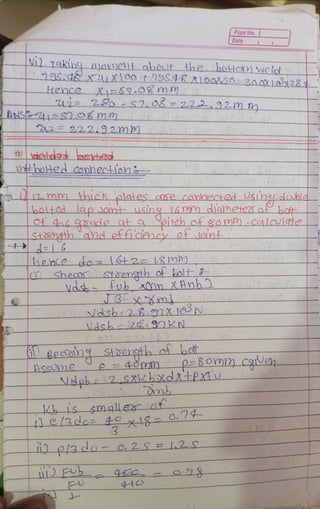 Page No.
Date
vi) Taking moment about the bottom weld
795.48 x x1 x 100 + 795.48 x 100x50 = 300x10³x28
Hence x1 = 59.08 mm
x2 = 280 - 57.08 = 222.92 mm
ANS= x1 = 57.08 mm
x2 = 222.92 mm
#
bolted connection:-
1) 12 mm thick plates are connected using double
bolted lap joint using 16 mm diameter of bolt
of 4.6 grade at a pitch of 80 mm. calculate
strength and efficiency of joint
→ d = 16
hence do = 16+2 = 18 mm
(i) shear strength of bolt :-
Vdsb = fub x (nn x Anb)
√3 x γmb
Vdsb = 28.97 x 10³N
Vdsb = 28.97 KN
(ii) Bearing strength of bolt
Assume e = 40mm p = 80mm given
Vdpb = 2.5 x kb x d x t x fu
γmb
Kb is smaller of
i) e/3do = 40 x 18 = 0.74
3
ii) p/3do - 0.25 = 1.25
iii) Fub = 400 = 0.98
Fu 410
iv) 1